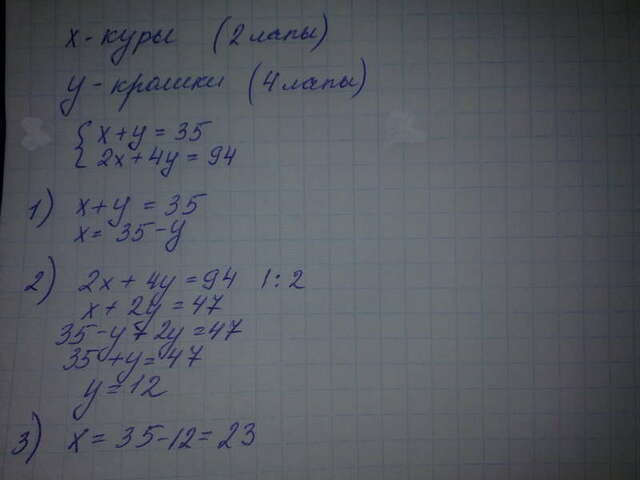 x - куры (2 лапы)
y - кролики (4 лапы)
{ x + y = 35
2x + 4y = 94
1) x + y = 35
x = 35 - y
2) 2x + 4y = 94 | : 2
x + 2y = 47
35 - y + 2y = 47
35 + y = 47
y = 12
3) x = 35 - 12 = 23